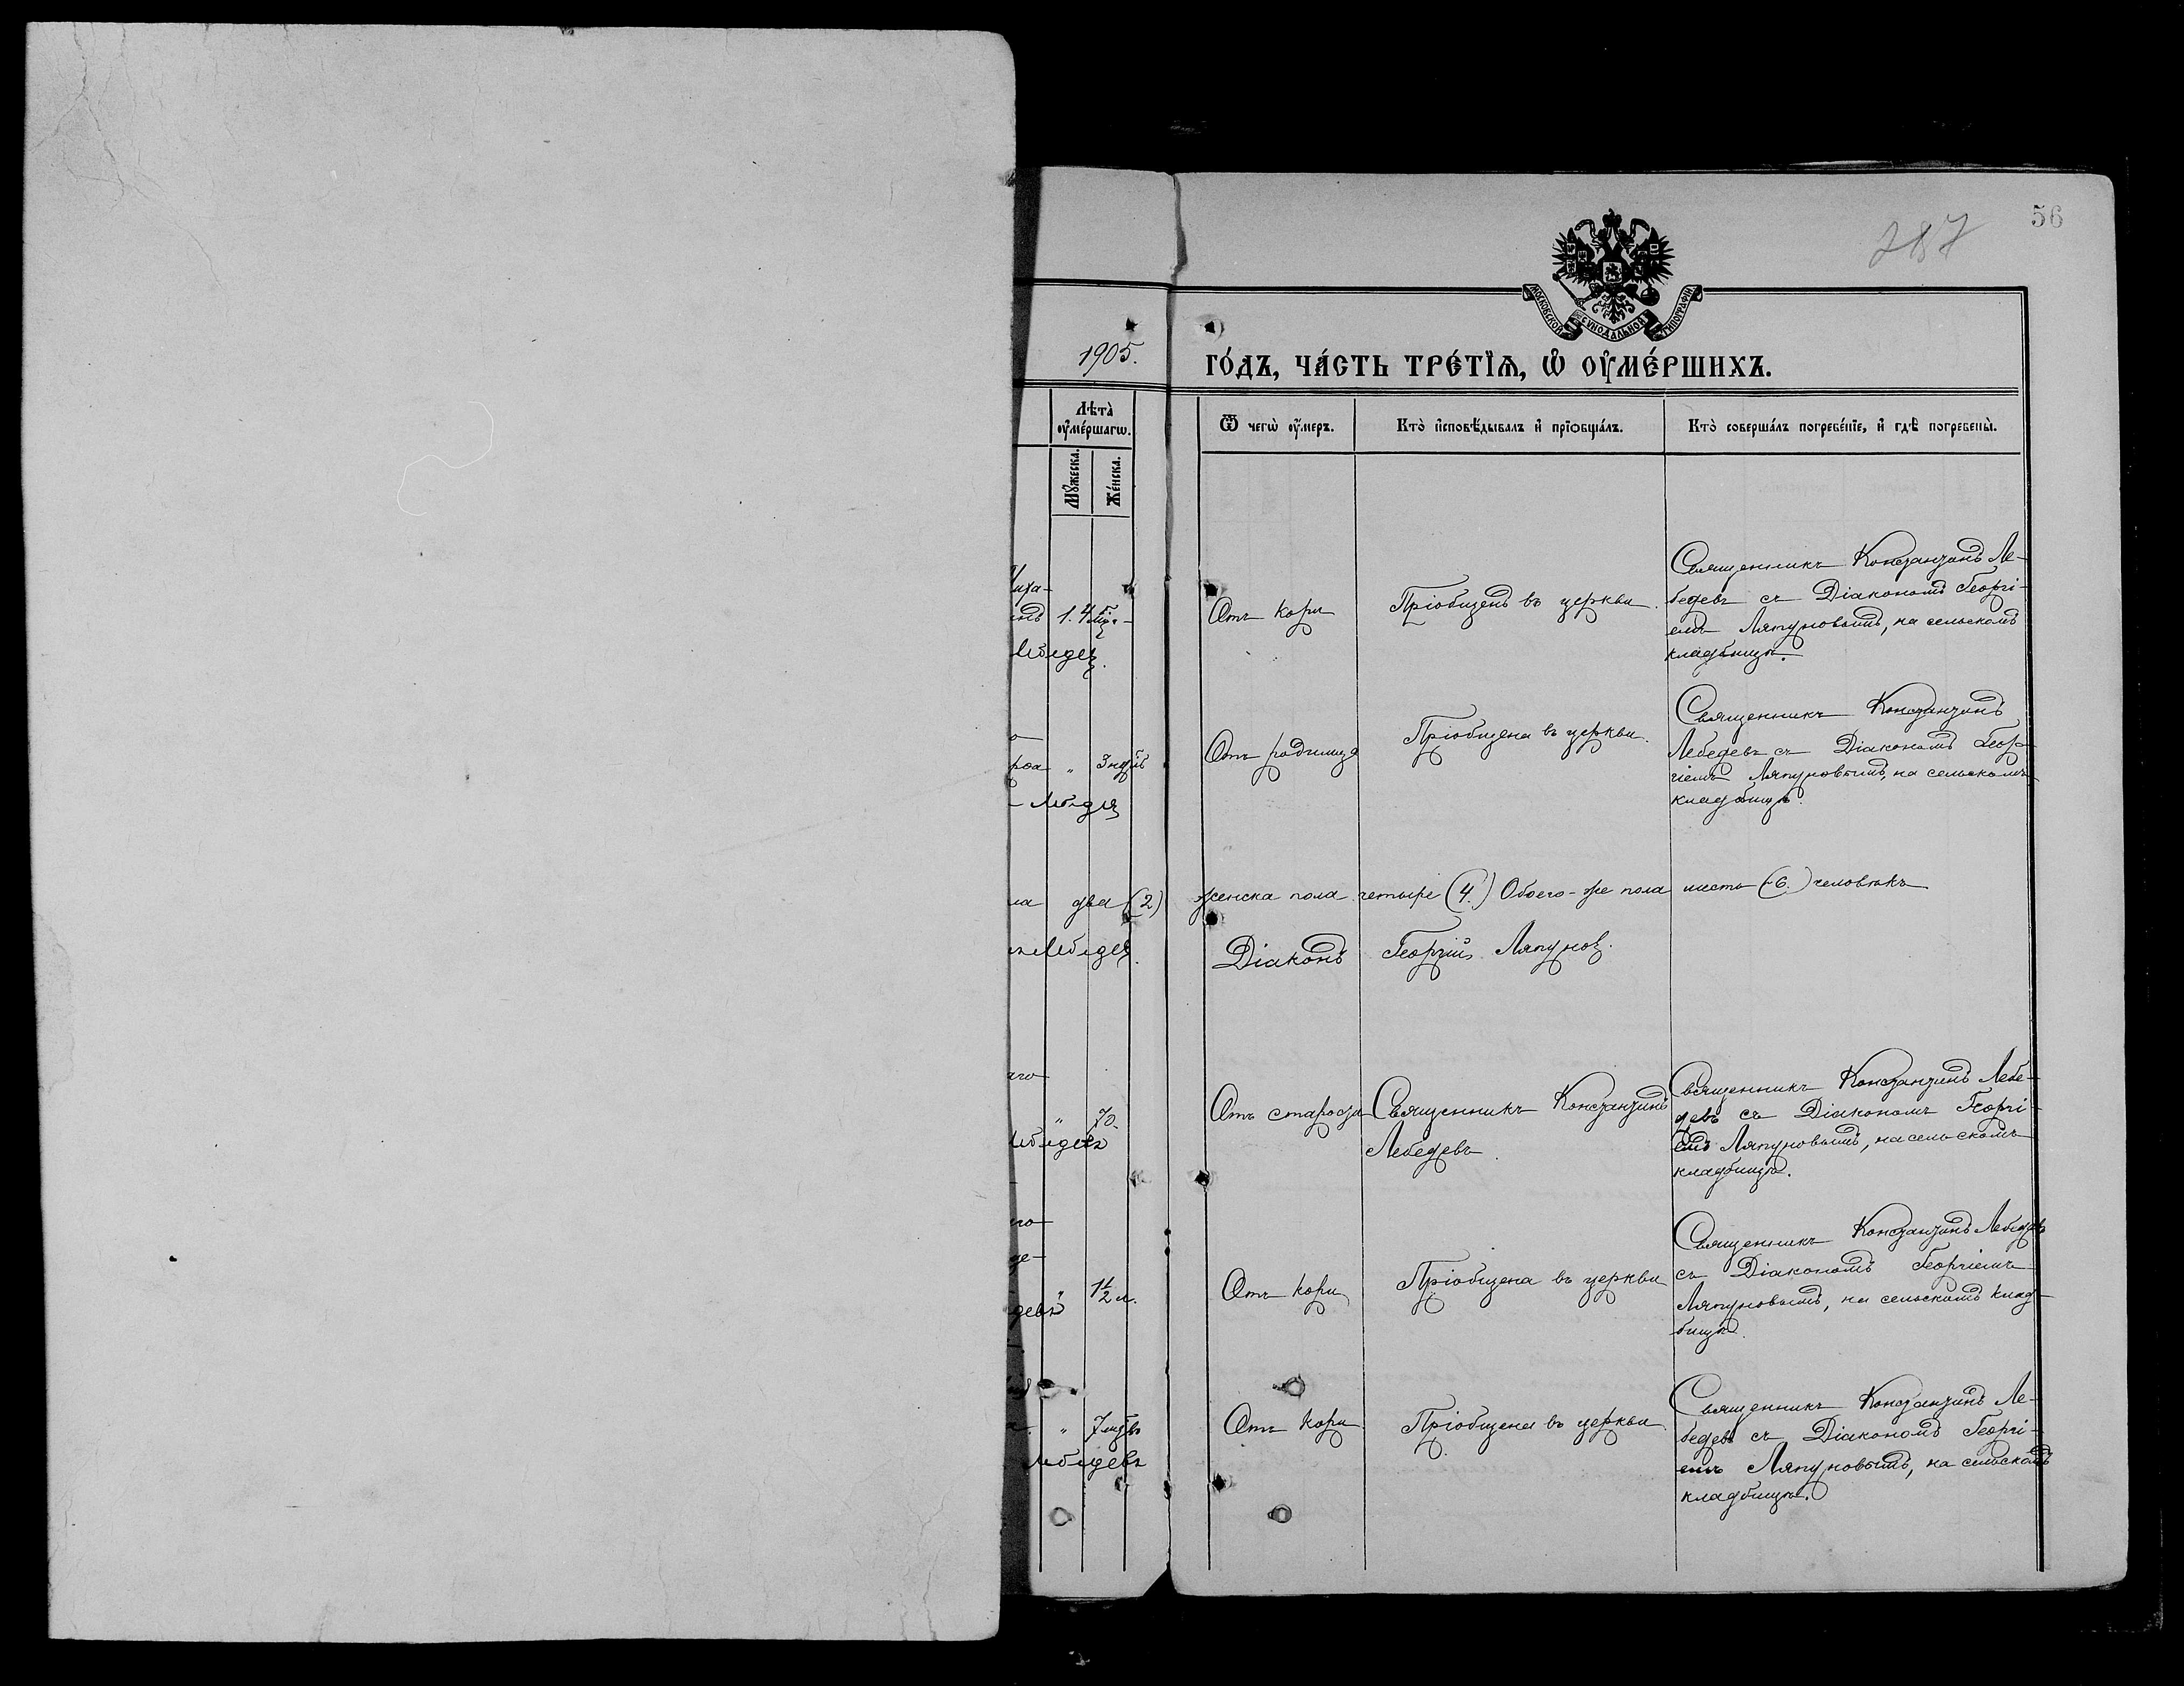 56
287
МОСКОВСКОЙ СѴНОДАЛЬНОЙ ТИПОГРАФІИ
1905.
го́дъ, ча́сть тре́тїѧ, ѡ҆ ᲂу҆ме́ршихъ.
Лѣта̀ ᲂу҆ме́ршагѡ.
Мꙋ́жеска.
Же́нска.
Ѿ чегѡ̀ ᲂу҆́меръ.
Кто̀ и҆сповѣ́дывалъ и҆ прїѡбща́лъ.
Кто̀ соверша́лъ погребе́нїе, и҆ гдѣ̀ погребены̀.
1.4
Отъ кори
Пріобщенъ въ церкви.
Священникъ Константинъ Ле-
бедевъ съ Діакономъ Георгі-
емъ Ляпуновымъ, на сельскомъ
кладбищѣ.
„ 3 нед.
Отъ родимца
Пріобщена въ церкви.
Священникъ Константинъ
Лебедевъ съ Діакономъ Геор-
гіемъ Ляпуновымъ, на сельскомъ
кладбищѣ.
ла два (2) женска пола четыре (4.) Обоего-же пола шесть (6.) человѣкъ
Діаконъ Георгій Ляпуновъ.
„ 70.
Отъ старости
Священникъ Константинъ
Лебедевъ.
Священникъ Константинъ Лебе-
девъ съ Діакономъ Георгі-
емъ Ляпуновымъ, на сельскомъ
кладбищѣ.
„ 1 1/2 л.
девъ
Отъ кори
Пріобщена въ церкви
Священникъ Константинъ Лебедевъ
съ Діакономъ Георгіемъ
Ляпуновымъ, на сельскомъ клад-
бищѣ.
„ 7
Лебедевъ
Отъ кори
Пріобщена въ церкви
Священникъ Константинъ Ле-
бедевъ съ Діакономъ Георгі-
емъ Ляпуновымъ, на сельскомъ
кладбищѣ.